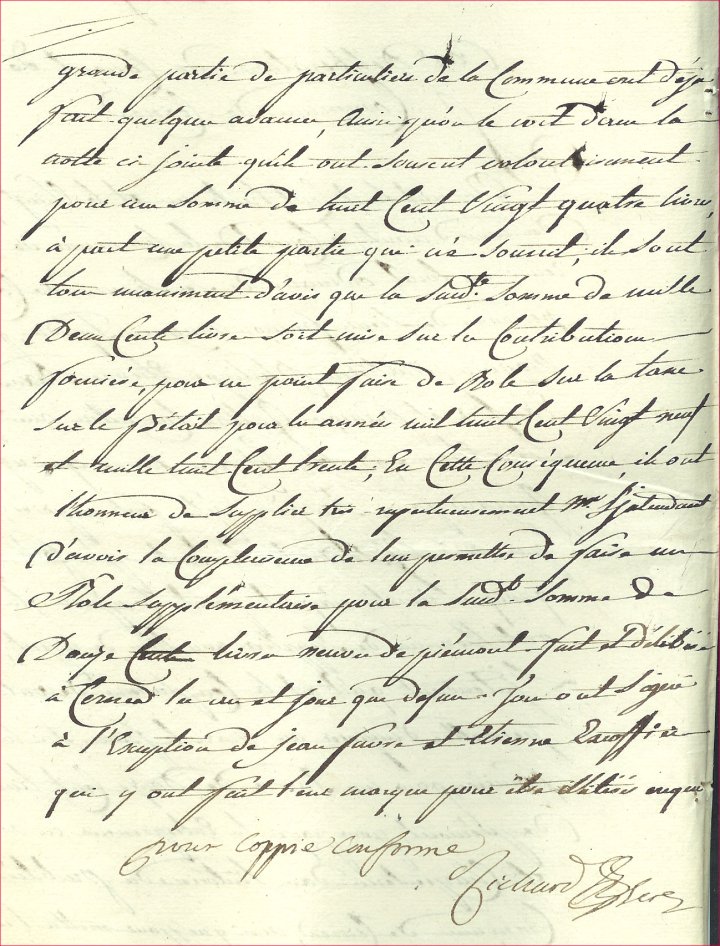 grande partie de particuliers de la Commune ont déja
fait quelque avance, Ainsi qu'on le voit dans la
notte ci jointe qu'ils ont souscrit volontairement
pour une somme de huit Cent Vingt quatre livres,
à part une petite partie qui n'a souscrit, ils sont
tous unaniment d'avis que la Sudte. Somme de mille
Deux Cents livres soit mise sur la Contribution
fonciére, pour ne point faire de Role sur la taxe
sur le Bétail pour les années mil huit Cent Vingt neuf
et mille huit Cent trente; En Cette Conséquence, ils ont
l'honneur de Supplier trés respectueusement Mr. l'jntendant
D'avoir la Complaisance de leur permettre de faire un
Role Supplémentaire pour la Sudte. Somme de
Douze Cents livres neuves de piémont. fait et délibéré
à les an et jour que dessus. Tous ont Signé
à l'Exeption de jean favre et Etienne
qui y ont fait leur marque pour être illétérés enquis
pour coppie conforme
Richard